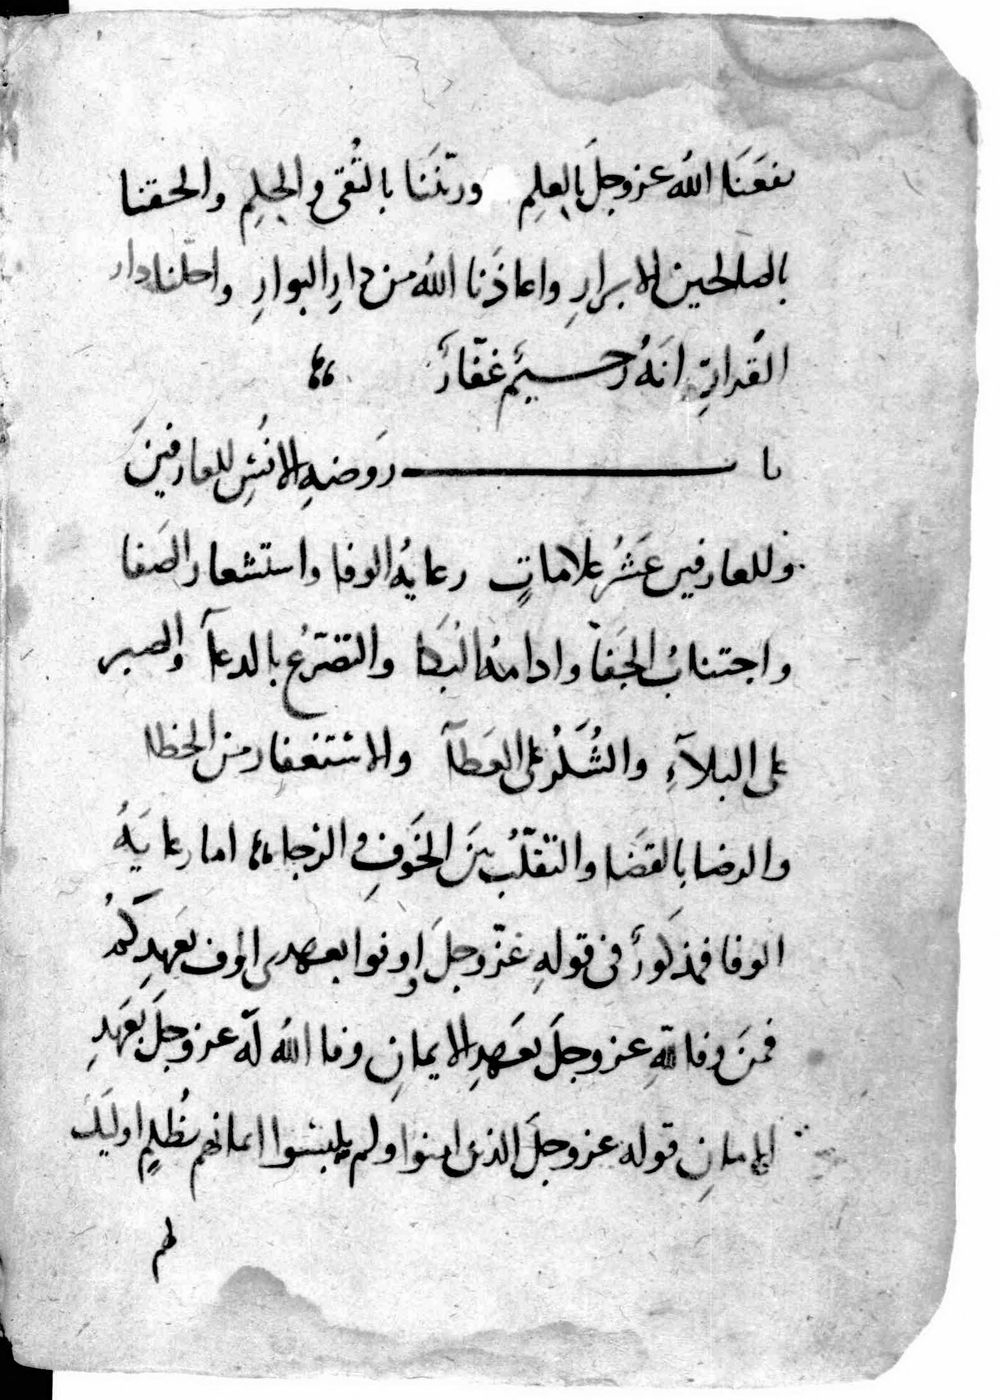 نفعَنَا اللهُ عز وجلَ بالعِلمِ وزيّنَنا بالتُقى والحِلمِ والحقنا
بالصالحين الابرارِ واعاذَنا اللهُ من دارِ البوارِ واحلّنا دار
القَرارِ انهُ رحيمٌ غفّارٌ
باب رَوضهِ الانُسِ للعارفينَ
وللعارفين عَشرُ علاماتٍ رعايهُ الوفا واستشعار الصَفا
واجتنابُ الجَفآ وادامهُ البُكا والتضرّعُ بالدعآ والصبر
على البلآءِ والشُكرُ على العَطآ والاستغفار من الخطا
والرضا بالقضَا والتقلّبُ بَينَ الخَوفِ والرجاء اما رعايَهُ
الوفا فمذكَورٌ فى قولهِ عَزّ وجلَ اوفوا بعهدى اوف بعَهدِكُم
فمَن وفا للهِ عز وجلَ بعَهدِ الايمانِ وفا اللهُ لَهُ عز وجلَ بعَهدِ
الامانِ قوله عز وجلَ الذين امنوا ولم يلبسُوا ايمانهم بظُلمٍ اوليَكَ
لهم